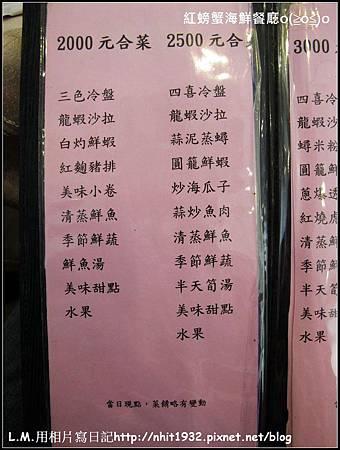 紅螃蟹海鮮餐廳o(≧o≦)o
2000 元合菜
三色冷盤
龍蝦沙拉
白灼鮮蝦
紅麴豬排
美味小卷
清蒸鮮魚
季節鮮蔬
鮮魚湯
美味甜點
水果
2500 元合
四喜冷盤
龍蝦沙拉
蒜泥蒸蟳
圓籠鮮蝦
炒海瓜子
蒜炒魚肉
清蒸鮮魚
季節鮮蔬
半天筍湯
美味甜點
水果
3000
四喜冷
龍蝦沙
蟳米粉
圓籠鮮
蔥爆透
紅燒
清蒸鮮
季節鮮
半天筍
美味甜
水果
當日現點，菜餚略有變動
L.M.用相片寫日記http://nhit1932.pixnet.net/blog